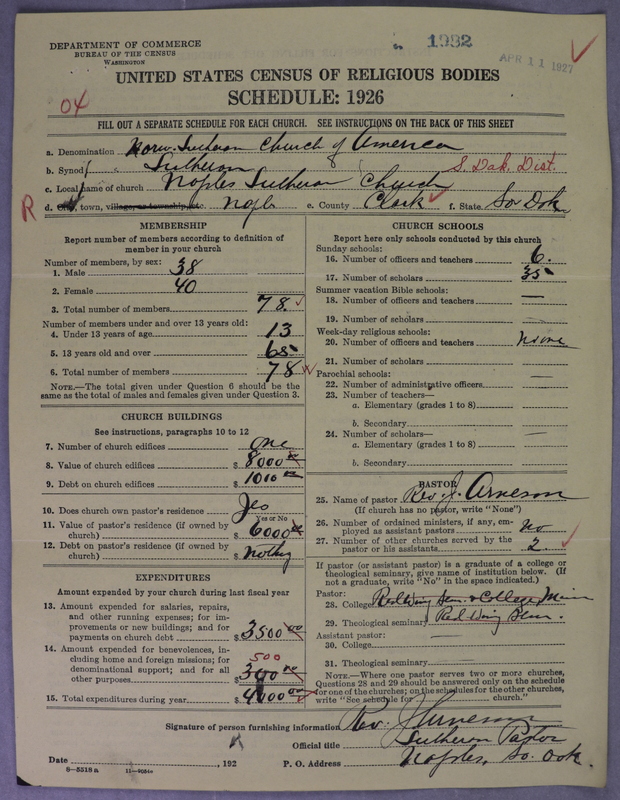 DEPARTMENT OF COMMERCE
BUREAU OF THE CENSUS
WASHINGTON
1932
APR 11 1927
UNITED STATES CENSUS OF RELIGIOUS BODIES
SCHEDULE: 1926
04
FILL OUT A SEPARATE SCHEDULE FOR EACH CHURCH. SEE INSTRUCTIONS ON THE BACK OF THIS SHEET
a. Denomination Norw. Lutheran Church of America
b. Synod Lutheran S. Dak. Dist.
c. Local name of church Naples Lutheran Church
R
d. City, town, village, or township, etc. Napls e. County Clark f. State So Dak
MEMBERSHIP
Report number of members according to definition of
member in your church
Number of members, by sex:
1. Male 38
2. Female 40
3. Total number of members 78
Number of members under and over 13 years old:
4. Under 13 years of age 13
5. 13 years old and over 65
6. Total number of members 78
NOTE.—The total given under Question 6 should be the
same as the total of males and females given under Question 3.
CHURCH BUILDINGS
See instructions, paragraphs 10 to 12
7. Number of church edifices one
8. Value of church edifices $ 8000 00
9. Debt on church edifices $ 1000 00
10. Does church own pastor's residence Yes
Yes or No
11. Value of pastor's residence (if owned by
church) $ 6000 00
12. Debt on pastor's residence (if owned by
church) $ nothing
EXPENDITURES
Amount expended by your church during last fiscal year
13. Amount expended for salaries, repairs,
and other running expenses; for im-
provements or new buildings; and for
payments on church debt $ 3500 00
14. Amount expended for benevolences, in-
cluding home and foreign missions; for
denominational support; and for all
other purposes $ 500
15. Total expenditures during year $ 4000 00
CHURCH SCHOOLS
Report here only schools conducted by this church
Sunday schools:
16. Number of officers and teachers 6.
17. Number of scholars 35
Summer vacation Bible schools:
18. Number of officers and teachers —
19. Number of scholars —
Week-day religious schools:
20. Number of officers and teachers none
21. Number of scholars
Parochial schools:
22. Number of administrative officers
23. Number of teachers—
a. Elementary (grades 1 to 8)
b. Secondary
24. Number of scholars—
a. Elementary (grades 1 to 8)
b. Secondary
PASTOR
25. Name of pastor Rev. J. Arneson
(If church has no pastor, write "None")
26. Number of ordained ministers, if any, em-
ployed as assistant pastors no
27. Number of other churches served by the
pastor or his assistants 2.
If pastor (or assistant pastor) is a graduate of a college or
theological seminary, give name of institution below. (If
not a graduate, write "No" in the space indicated.)
Pastor:
28. College Red Wing Sem. & College, Minn
29. Theological seminary Red Wing Sem.
Assistant pastor:
30. College
31. Theological seminary
NOTE.—Where one pastor serves two or more churches,
Questions 28 and 29 should be answered only on the schedule
for one of the churches; on the schedules for the other churches,
write "See schedule for church."
Signature of person furnishing information Rev. J. Arneson
Official title Lutheran Pastor
Date , 192 P. O. Address Naples, So. Dak.
8—5518 a 11—9054